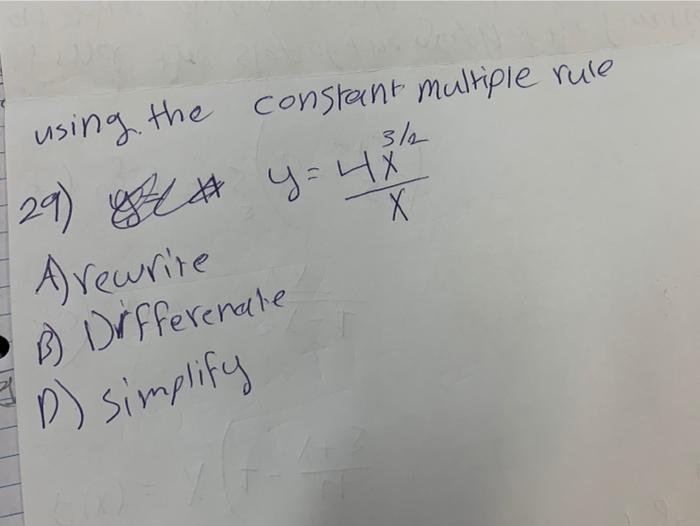 using the constant multiple rule
29) y = 4x^3/2
x
A) rewrite
B) Differenate
D) simplify